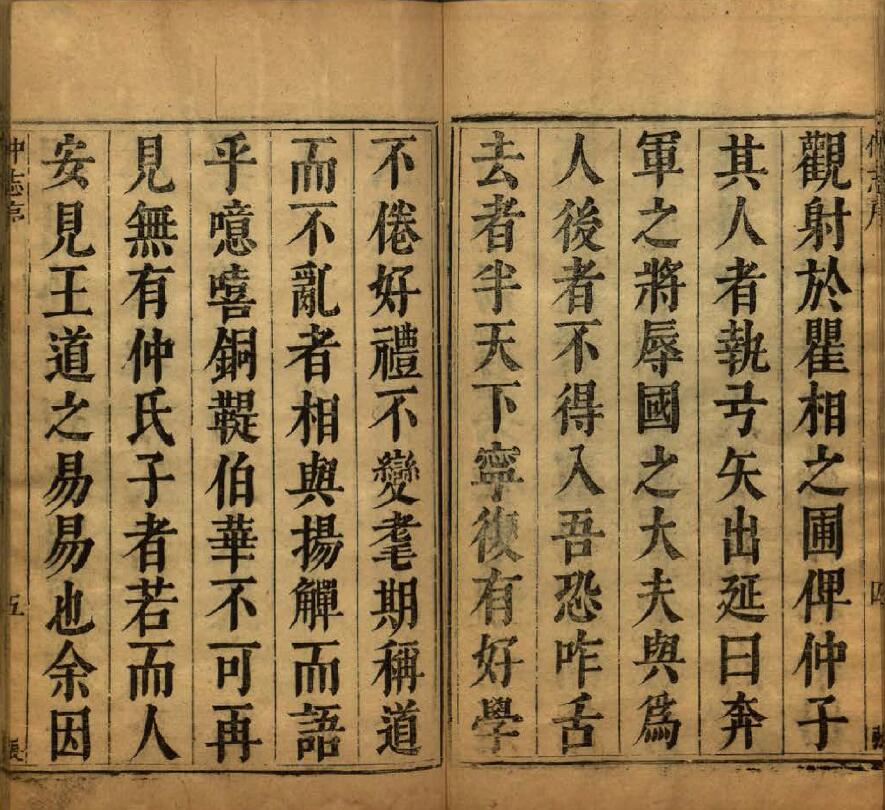 觀射於瞿相之圃俾仲子
其人者執弓矢出延曰奔
軍之將辱國之大夫與爲
人後者不得入吾恐咋舌
去者半天下寧復有好學
不倦好禮不變耄期稱道
而不亂者相與揚觶而語
乎噫嘻銅鞮伯華不可再
見無有仲氏子者若而人
安見王道之易易也余因
仲志序
五